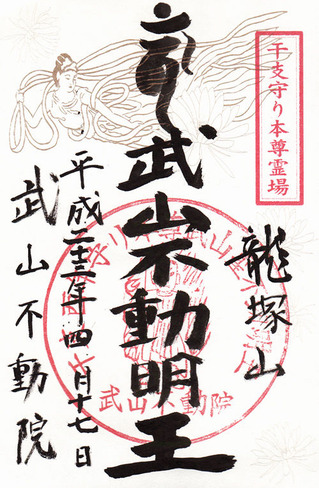 干支守り本尊霊場
龍塚山
武山不動明王
平成二十三年四月十七日
武山不動院
武山不動院